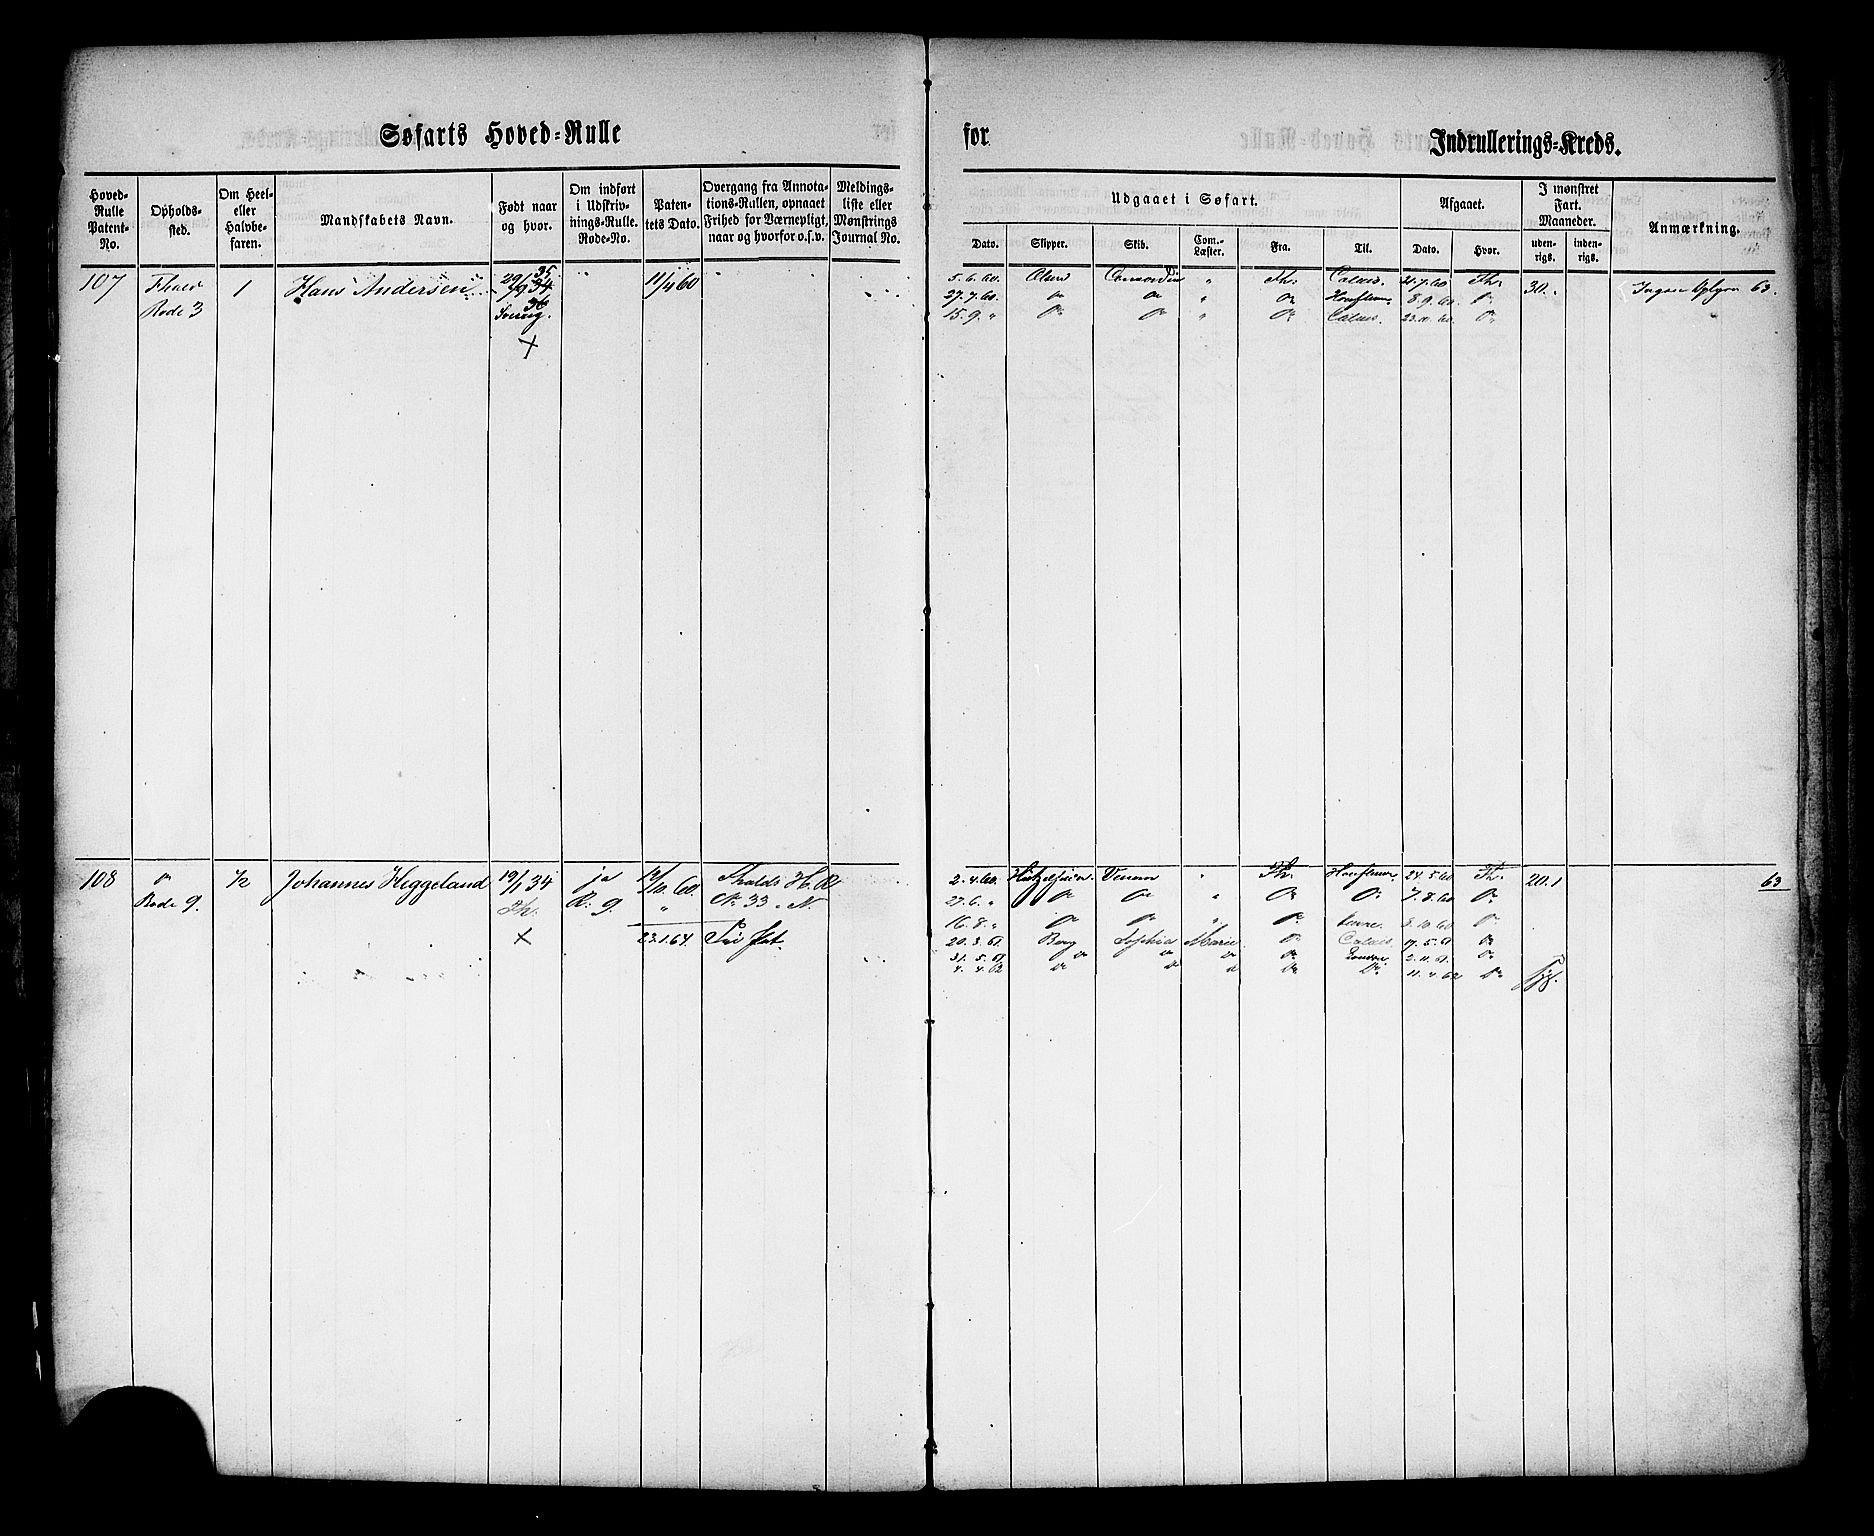 Søfarts Hoved-Rulle for Indrullerings-Kreds.
Hoved-Rulle Patent-No. | Opholds-sted. | Om Heel- eller Halvbe-faren. | Mandskabets Navn. | Født naar og hvor. | Om indført i Udskriv-nings-Rulle. Rode-No. | Paten-tets Dato. | Overgang fra Annota-tions-Rullen, opnaaet Frihed for Værnepligt, naar og hvorfor o.s.v. | Meldings-liste eller Mønstrings Journal No.
Udgaaet i Søfart. | Afgaaet. | I mønstret Fart. Maaneder. | Anmærkning.
Dato. | Skipper. | Skib. | Com.-Læster. | Fra. | Til. | Dato. | Hvor. | uden-rigs. | inden-rigs.
107 | 1 | Hans Andersen | 29/9 34 | 11/4 60 | 5.6.60. | Olsen | " | Fh. | Calais. | 21.7.60 | Fh. | 30. | 63.
Rode 3 | 36 | 27.7.60. | Do | Do | " | Do | 8.9.60 | Do
Sverig. | 15.9. " | Do | Do | " | Do | Calais. | 23.10.60. | Do
+
108 | Do | 1/2 | Johannes Heggeland | 19/1 34 | ja | 12/10. 60 | H.R. | 2.4.60. | " | Fh. | 24.5.60 | Fh. | 20.1 | 63
Rode 9. | Fh. | R. 9. | " | No 33. N. | 27.6. " | Do | Do | " | Do | Do | 7.8.60 | Do
16.8. " | Do | Do | " | Do | 8.10.60 | Do
+ | 23.1.64 | 20.3.61 | Berg | Sophia Marie | Do | Calais | 17.5.61 | Do
31.5.61 | Do | Do | Do | Do | 2.11.61. | Do
4.4.62 | Do | Do | Do | Do | Do | 11.4.62 | Do